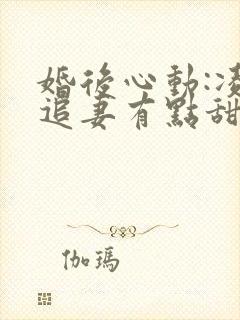 婚後心動:凌
追妻有點甜
伽瑪